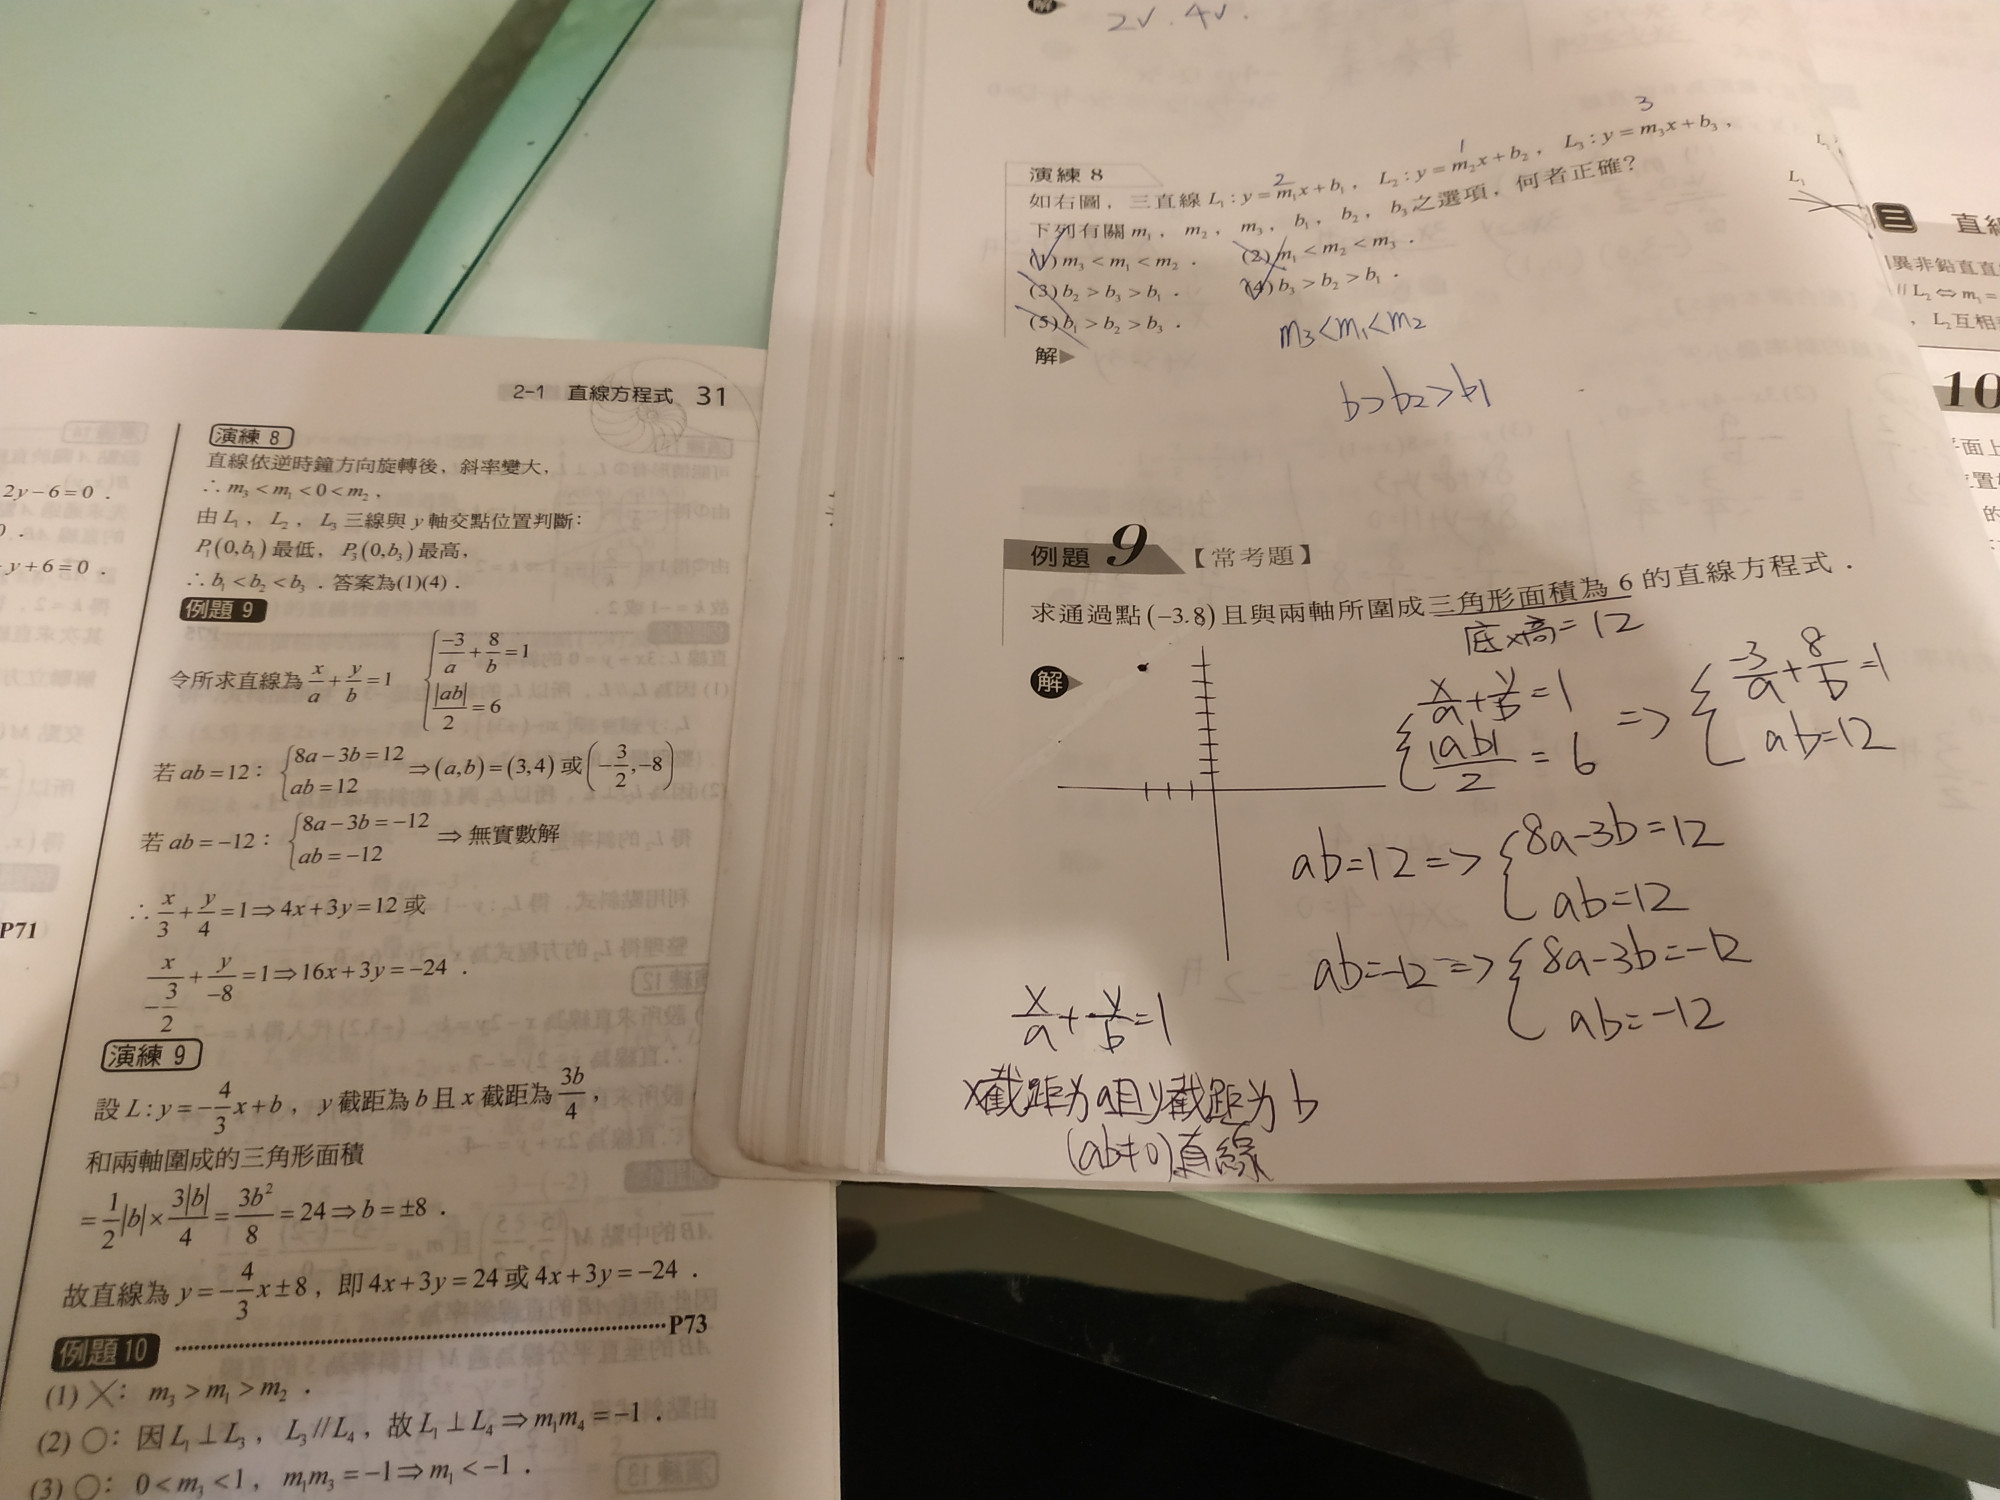 2-1 直線方程式 31
2y-6=0．
y+6=0．
P71
演練 8
直線依逆時鐘方向旋轉後，斜率變大，
∴ m₃<m₁<0<m₂，
由 L₁，L₂，L₃ 三線與 y 軸交點位置判斷：
P₁(0,b₁) 最低，P₃(0,b₃) 最高，
∴ b₁<b₂<b₃．答案為(1)(4)．
例題 9
令所求直線為 x/a + y/b = 1 { -3/a + 8/b = 1
|ab|/2 = 6
若 ab=12：{ 8a-3b=12
ab=12 ⇒ (a,b)=(3,4) 或 (-3/2,-8)
若 ab=-12：{ 8a-3b=-12
ab=-12 ⇒ 無實數解
∴ x/3 + y/4 = 1 ⇒ 4x+3y=12 或
x/(-3/2) + y/-8 = 1 ⇒ 16x+3y=-24．
演練 9
設 L：y=-4/3 x+b，y 截距為 b 且 x 截距為 3b/4，
和兩軸圍成的三角形面積
= 1/2 |b| × 3|b|/4 = 3b²/8 = 24 ⇒ b=±8．
故直線為 y=-4/3 x±8，即 4x+3y=24 或 4x+3y=-24．
例題 10 P73
(1) ╳：m₃>m₁>m₂．
(2) ○：因 L₁⊥L₃，L₃//L₄，故 L₁⊥L₄ ⇒ m₁m₄=-1．
(3) ○：0<m₃<1，m₁m₃=-1 ⇒ m₁<-1．
解
2✓. 4✓.
演練 8
2 1 3
如右圖，三直線 L₁：y=m₁x+b₁，L₂：y=m₂x+b₂，L₃：y=m₃x+b₃，
下列有關 m₁，m₂，m₃，b₁，b₂，b₃ 之選項，何者正確？
(1) m₃<m₁<m₂． (2) m₁<m₂<m₃．
(3) b₂>b₃>b₁． (4) b₃>b₂>b₁．
(5) b₁>b₂>b₃．
解
m₃<m₁<m₂
b>b₂>b1
L₁
例題 9 【常考題】
求通過點(-3.8)且與兩軸所圍成三角形面積為 6 的直線方程式．
底×高=12
解
{ x/a + y/b = 1
|ab|/2 = 6 => { -3/a + 8/b = 1
ab=12
ab=12 => { 8a-3b=12
ab=12
ab=-12 => { 8a-3b=-12
ab=-12
x/a + y/b = 1
x截距为a且y截距为b
(ab≠0)直線
三 直線
異非鉛直直
// L₂ ⇔ m₁=
，L₂互相
10
平面上
位置
的